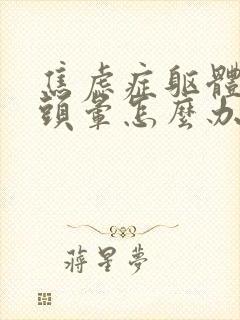 焦虑症躯體
頭暈怎麼办
蔣星夢